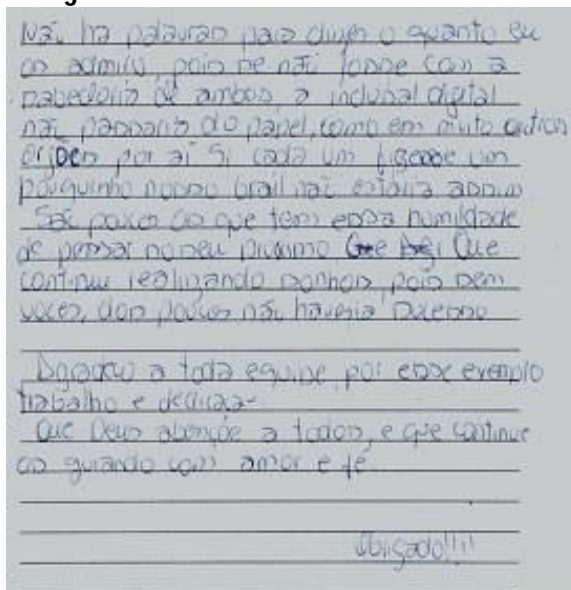 Não ha palavras para dizer o quanto eu
os admiro, pois se não fosse com a
sabedoria de ambos, a inclusal digital
não passaria do papel, como em muito outros
por aí Si cada um fizesse um
pouquinho nosso brasil não estaria assim
São poucos os que tem essa humildade
de pensar no seu proximo Que
continue realizando sonhos pois sem
voces, dos poucos não haveria sucesso
Agradeço a toda equipe por esse exemplo
trabalho e
Que Deus abençõe a todos, e que continue
os guiando com amor e fé
Obrigado!!!!